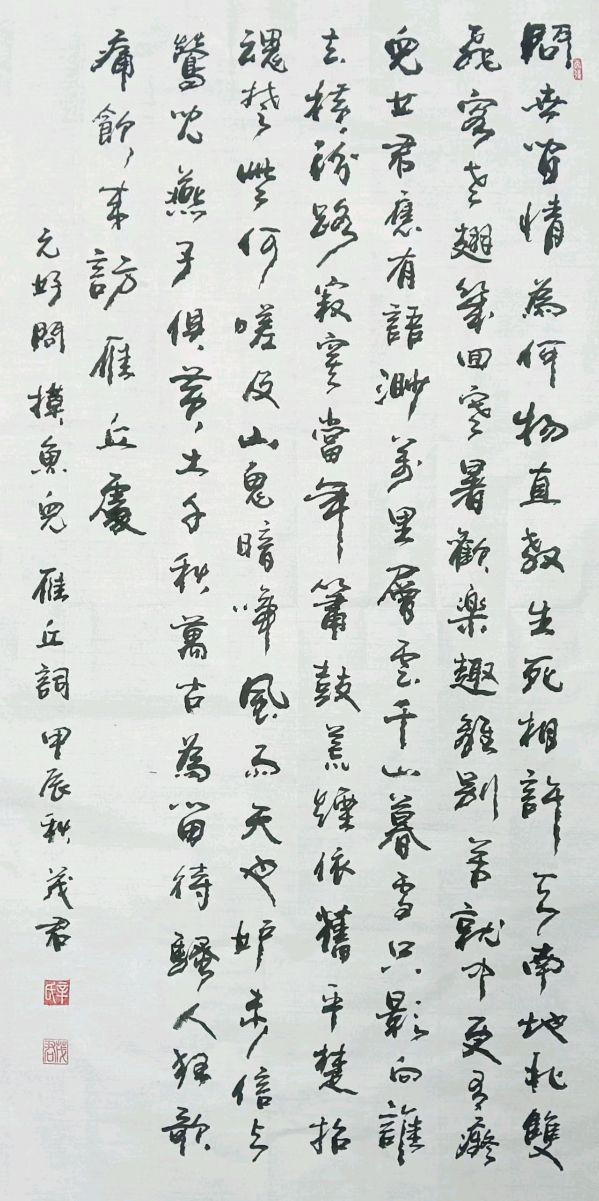 問世間情為何物直教生死相許天南地北雙
飛客老翅幾回寒暑歡樂趣離別苦就中更有癡
兒女君應有語渺萬里層雲千山暮雪只影向誰
去橫汾路寂寞當年簫鼓荒煙依舊平楚招
魂楚些何嗟及山鬼暗啼風雨天也妒未信與
鶯兒燕子俱黃土千秋萬古為留待騷人狂歌
痛飲來訪雁丘處
元好問摸魚兒 雁丘詞 甲辰秋 茂君
辛氏
茂君